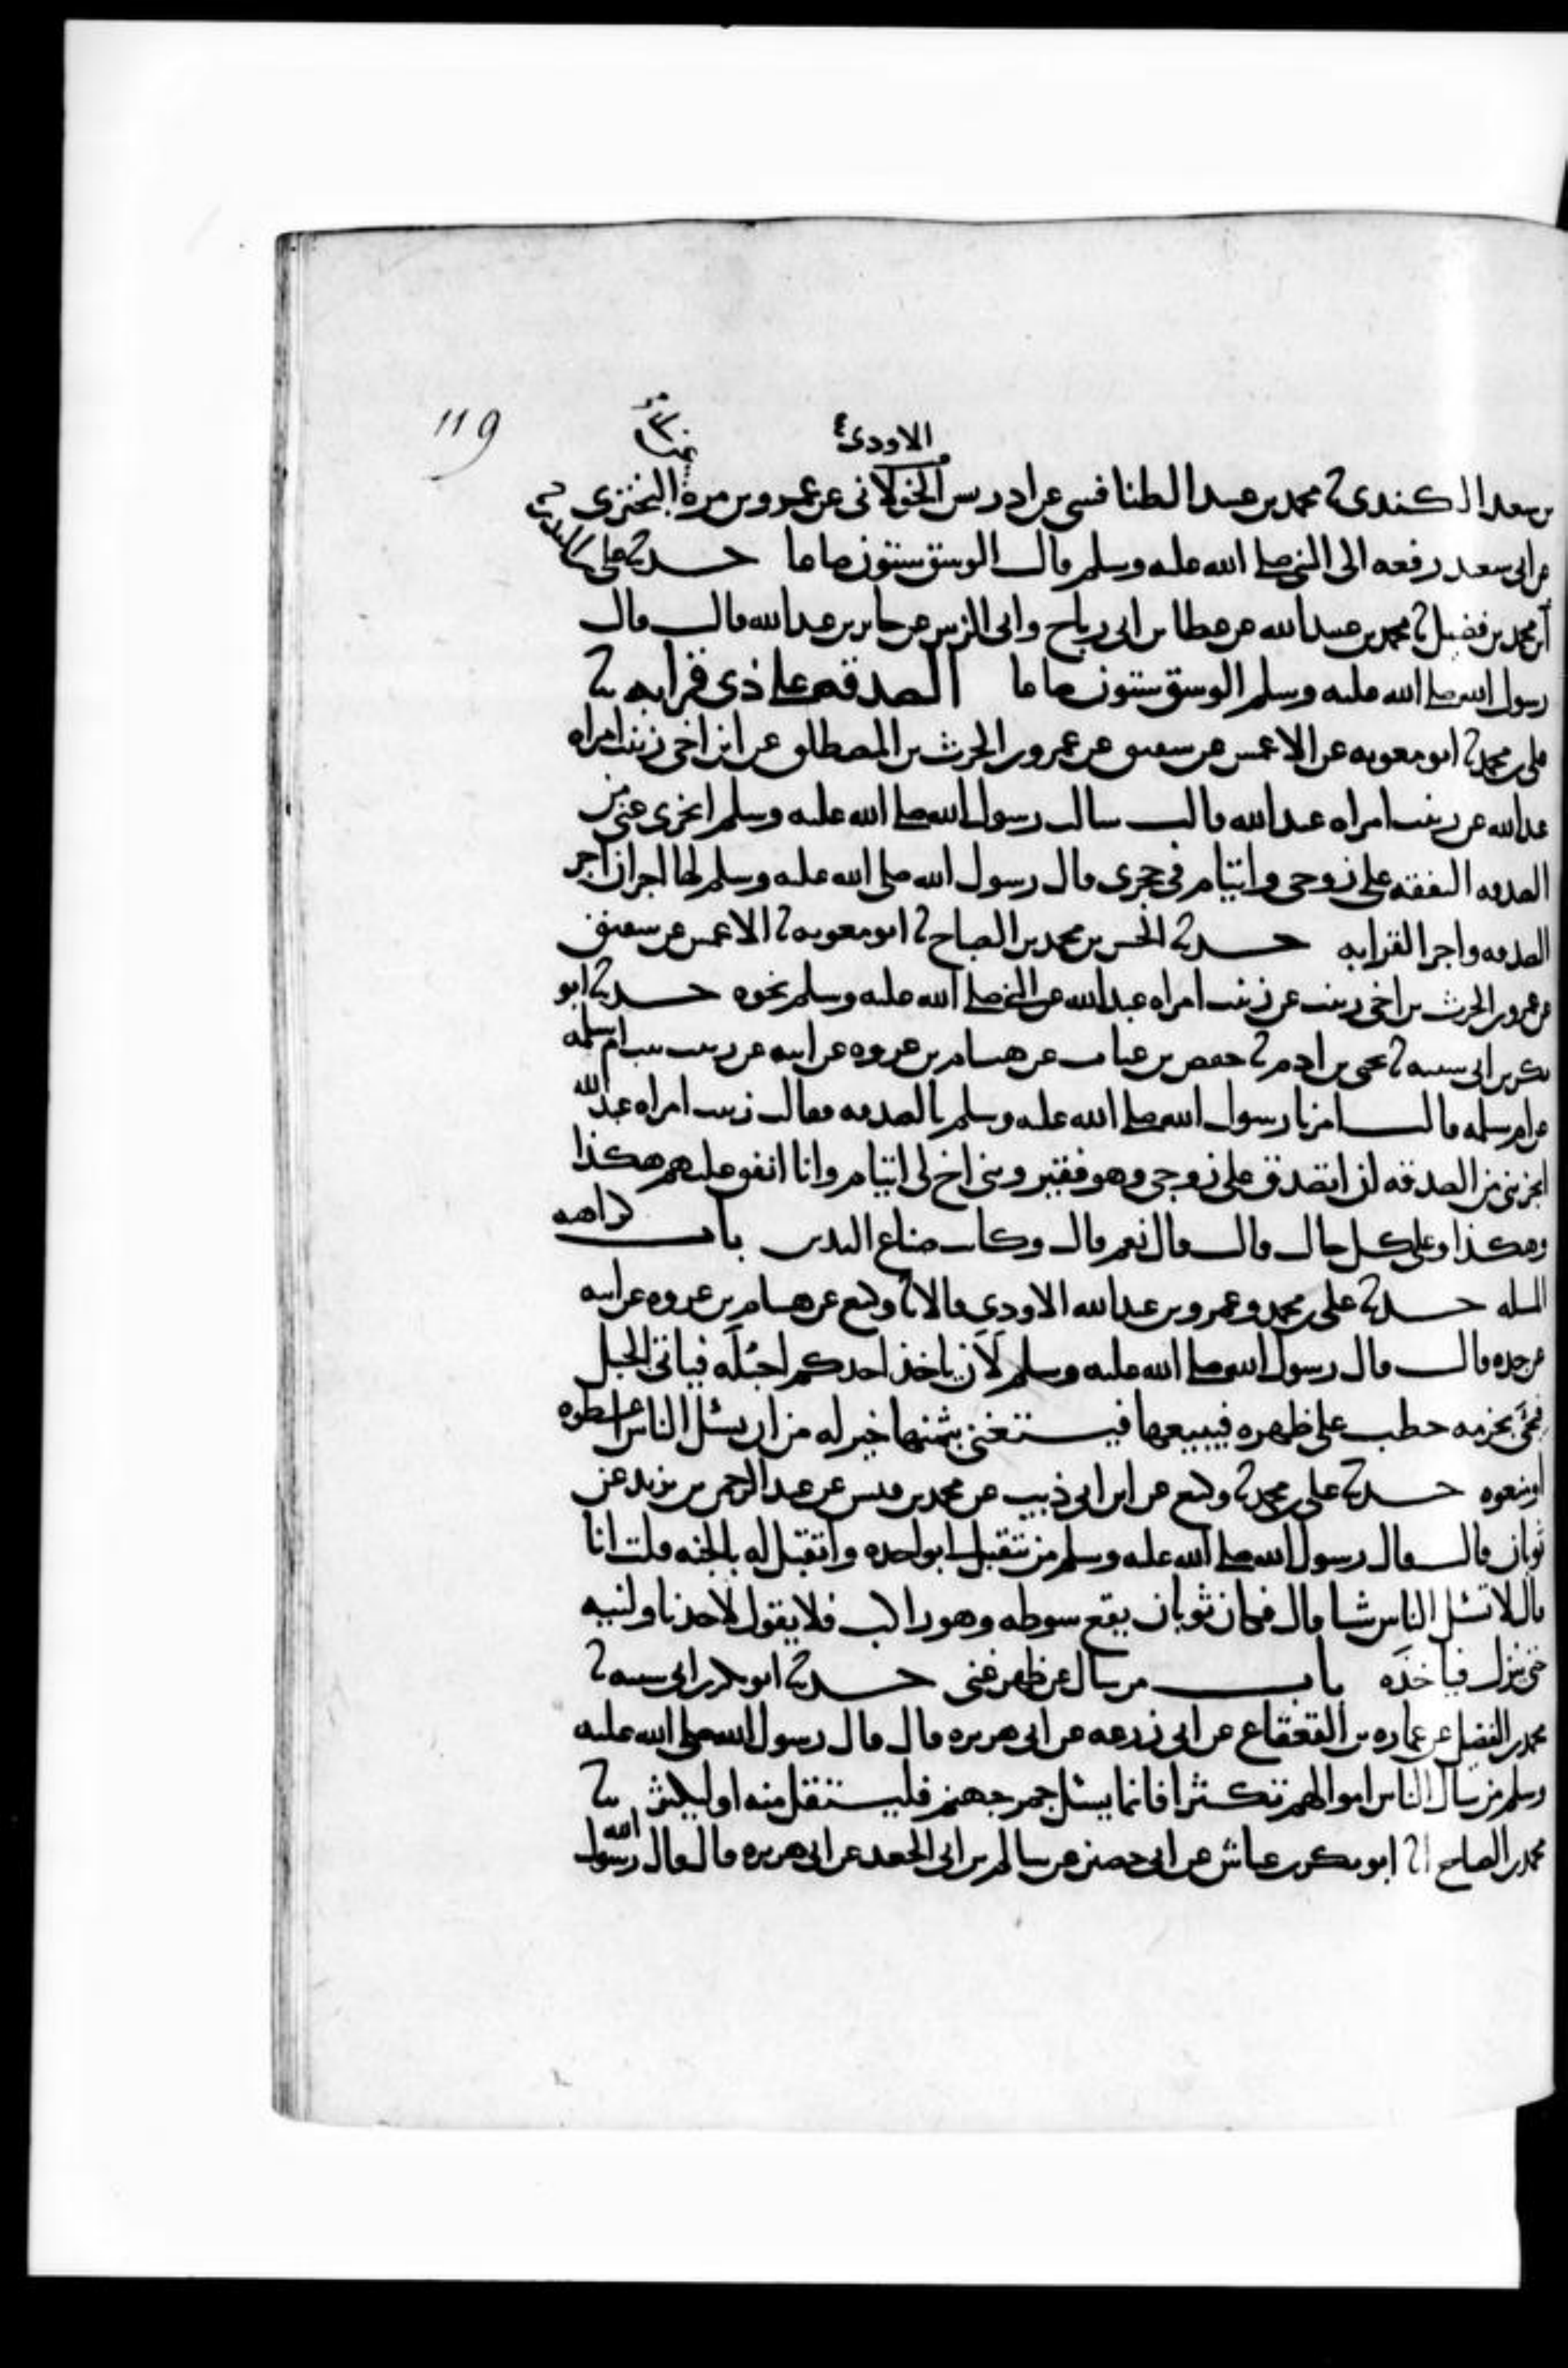 119
الاودي
بن سعد الكندي ثنا محمد بن عبيد الطنافسي عن ادريس الخولاني عن عمرو بن مرة البختري
عن ابي سعيد رفعه الى النبي صلى الله عليه وسلم قال الوسق ستون صاعا حدثنا علي بن المنذر
محمد بن فضيل ثنا محمد بن عبيد الله عن عطا بن ابي رباح وابي الزبير عن جابر بن عبد الله قال قال
رسول الله صلى الله عليه وسلم الوسق ستون صاعا الصدقة على ذي قرابة ثنا
علي بن محمد ثنا ابو معوية عن الاعمش عن شقيق عن عمرو بن الحرث بن المصطلق عن ابن اخي زينب امراه
عبد الله عن زينب امراه عبد الله قالت سالت رسول الله صلى الله عليه وسلم ايجزي عني من
الصدقه النفقه على زوجي وايتام في حجري قال رسول الله صلى الله عليه وسلم لها اجران اجر
الصدقه واجر القرابه حدثنا الحسن بن محمد بن الصباح ثنا ابو معويه ثنا الاعمش عن شقيق
عن عمرو بن الحرث بن اخي زينب عن زينب امراه عبد الله عن النبي صلى الله عليه وسلم نحوه حدثنا ابو
بكر بن ابي شيبه ثنا يحيى بن ادم ثنا حفص بن غياث عن هشام بن عروه عن ابيه عن زينب بنت ام سلمه
عن ام سلمه قالت امرنا رسول الله صلى الله عليه وسلم بالصدقه فقالت زينب امراه عبد الله
ايجزيني من الصدقه ان اتصدق على زوجي وهو فقير وبني اخ لي ايتام وانا انفق عليهم هكذا
وهكذا وعلى كل حال قال قال نعم قال وكانت صناع اليدين باب كراهيه
المسله حدثنا علي بن محمد وعمرو بن عبد الله الاودي قالا ثنا وكيع عن هشام بن عروه عن ابيه
عن جده قال قال رسول الله صلى الله عليه وسلم لان ياخذ احدكم احبله فياتي الجبل
فيجئ بحزمه حطب على ظهره فيبيعها فيستغني بثمنها خير له من ان يسئل الناس اعطوه
او منعوه حدثنا علي بن محمد ثنا وكيع عن ابن ابي ذيب عن محمد بن قيس عن عبد الرحمن بن يزيد عن
ثوبان قال قال رسول الله صلى الله عليه وسلم من يتقبل لي بواحده واتقبل له بالجنه قلت انا
قال لا تسئل الناس شيا قال فكان ثوبان يقع سوطه وهو راكب فلا يقول لاحد ناولنيه
حتى ينزل فياخذه باب من سال عن ظهر غنى حدثنا ابو بكر بن ابي شيبه ثنا
محمد بن الفضيل عن عماره بن القعقاع عن ابي زرعه عن ابي هريره قال قال رسول الله صلى الله عليه
وسلم من سال الناس اموالهم تكثرا فانما يسئل جمر جهنم فليستقل منه او ليكثر ثنا
محمد بن الصباح انا ابو بكر بن عياش عن ابي حصين عن سالم بن ابي الجعد عن ابي هريره قال قال رسول الله